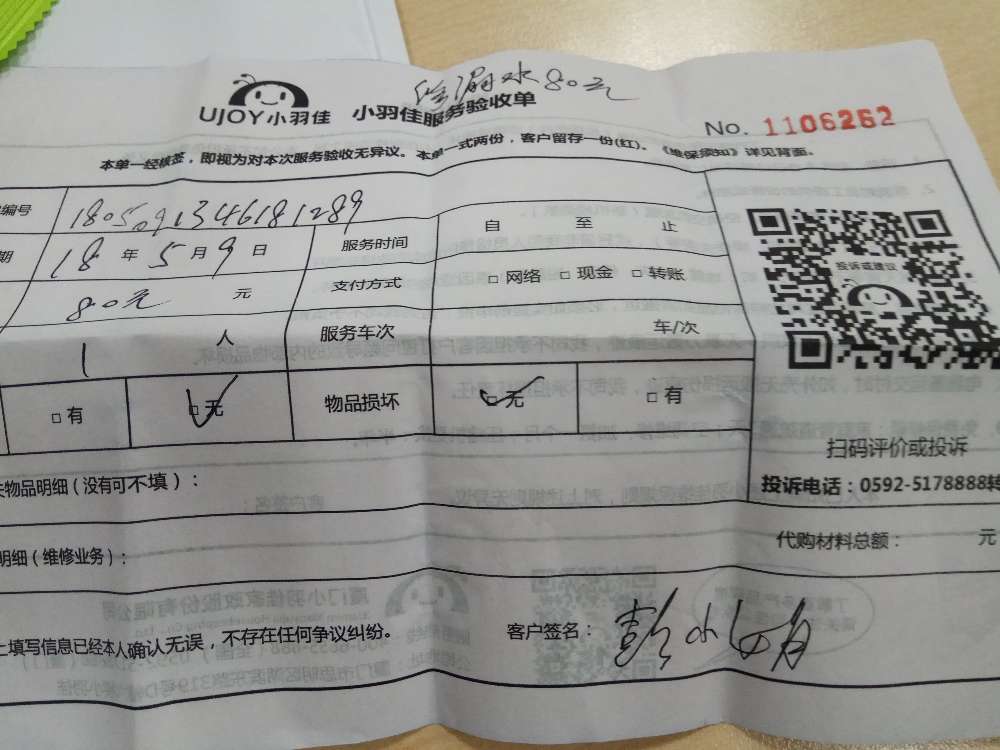 漏水80元
UJOY小羽佳 小羽佳服务验收单
No. 1106262
本单一经核签，即视为对本次服务验收无异议。本单一式两份，客户留存一份(红)。《维保须知》详见背面。
编号 1805091346181289
期 18 年 5 月 9 日 服务时间 自 至 止
80元 元 支付方式 □ 网络 □ 现金 □ 转账
投诉或建议
1 人 服务车次 车/次
□ 有 □ 无 物品损坏 □ 无 □ 有
扫码评价或投诉
物品明细（没有可不填）：
投诉电话：0592-5178888转
明细（维修业务）：
代购材料总额： 元
上填写信息已经本人确认无误，不存在任何争议纠纷。 客户签名：彭小